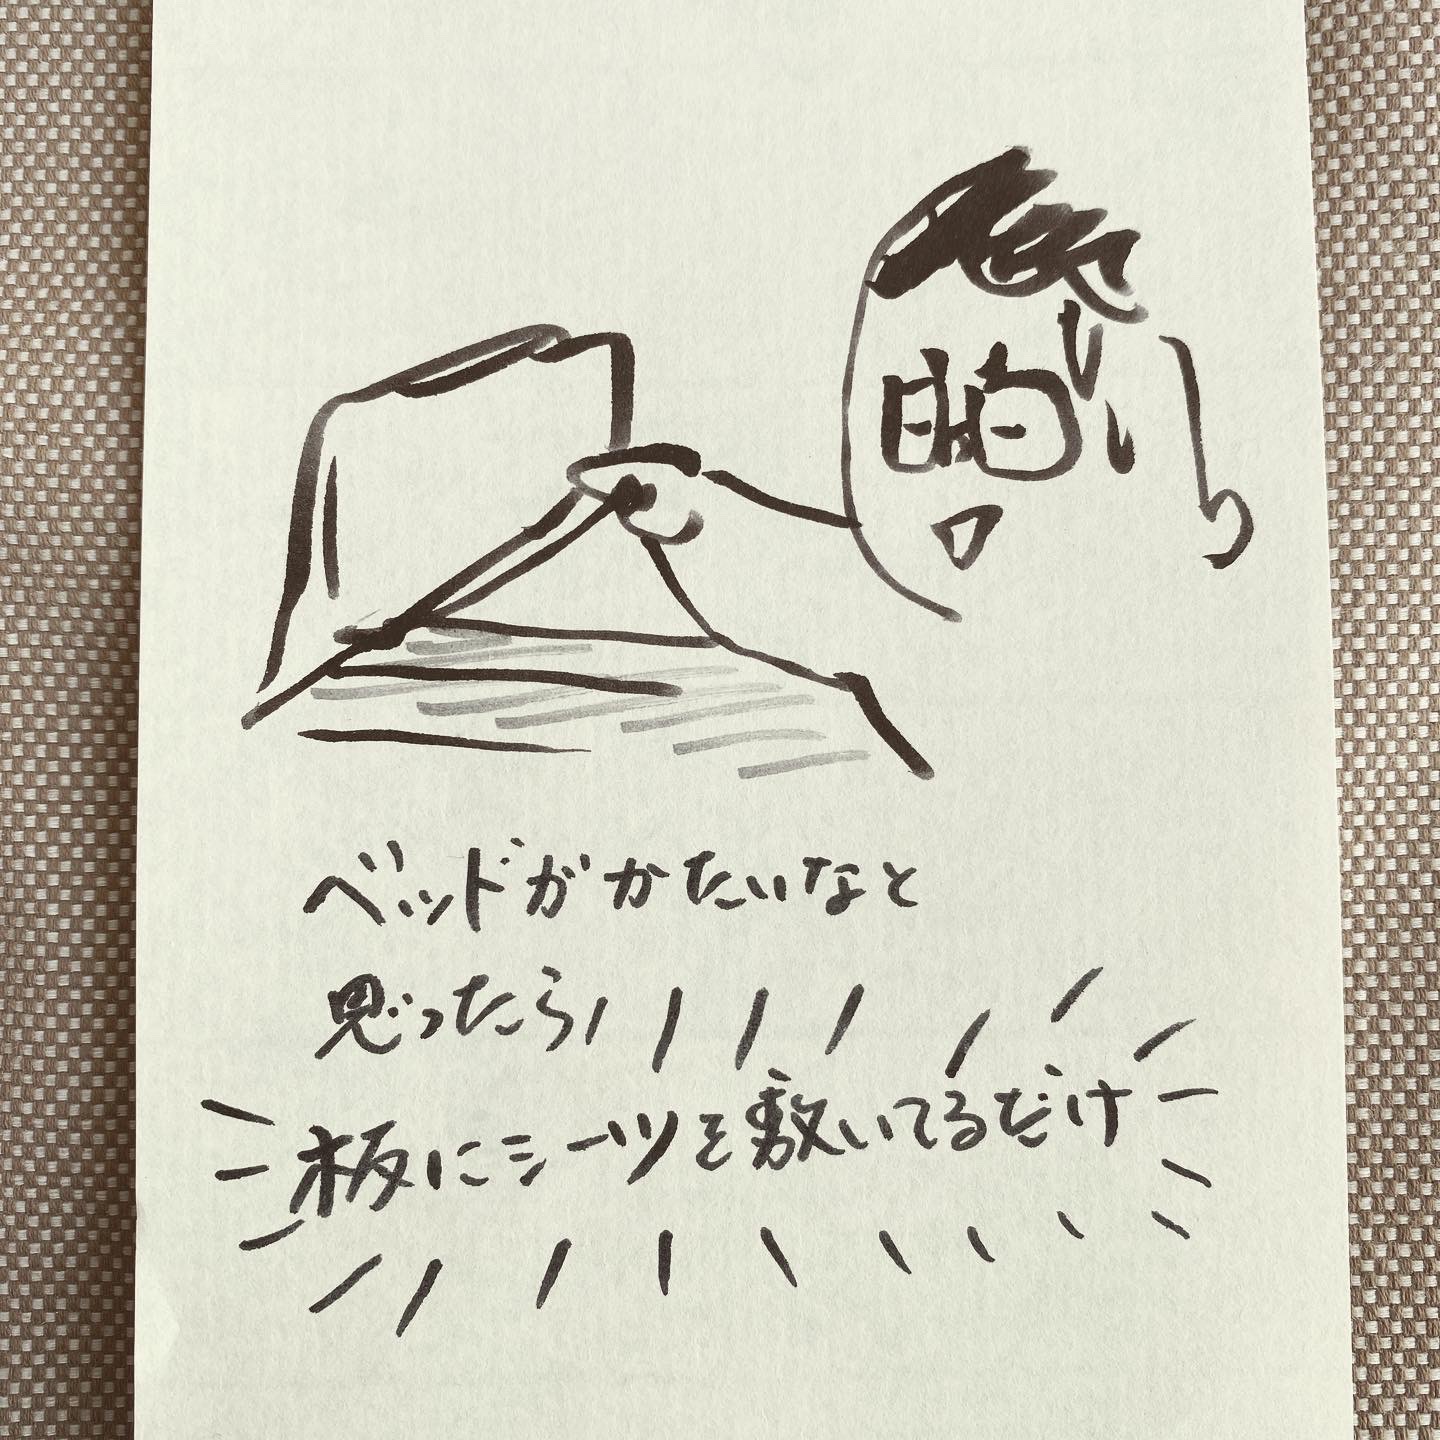 ベッドがかたいなと
思ったら
板にシーツを敷いてるだけ